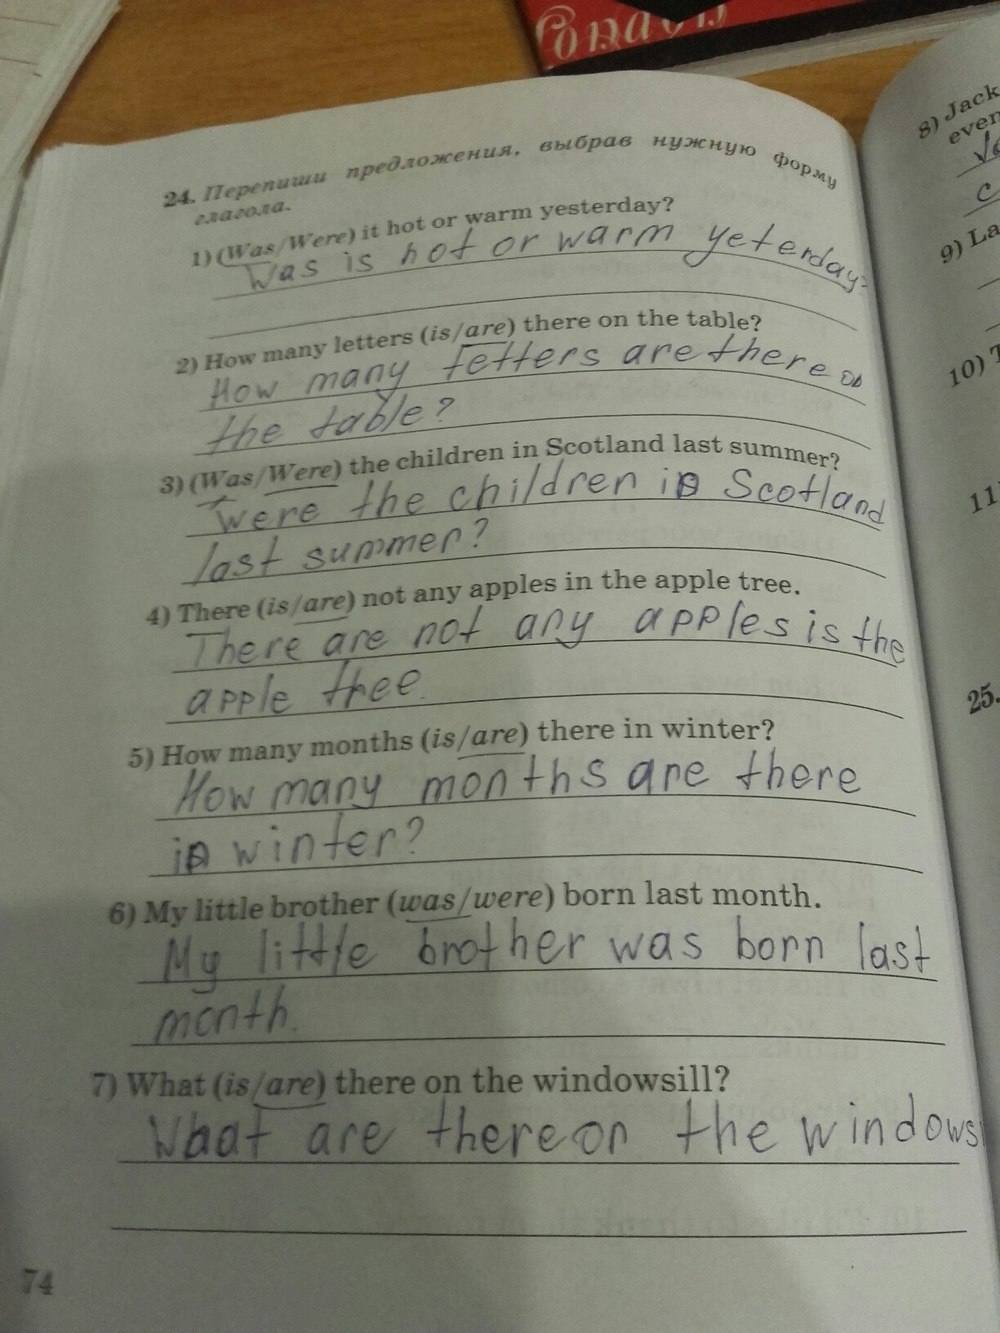 24. Перепиши предложения, выбрав нужную форму
глагола.
1) (Was/Were) it hot or warm yesterday?
Was is hot or warm yeterday?
2) How many letters (is/are) there on the table?
How many letters are there on
the table?
3) (Was/Were) the children in Scotland last summer?
Were the children in Scotland
last summer?
4) There (is/are) not any apples in the apple tree.
There are not any apples is the
apple thee.
5) How many months (is/are) there in winter?
How many months are there
in winter?
6) My little brother (was/were) born last month.
My little brother was born last
month.
7) What (is/are) there on the windowsill?
What are there on the windowsi
74
8) Jack
even
9) La
10) T
11
25.